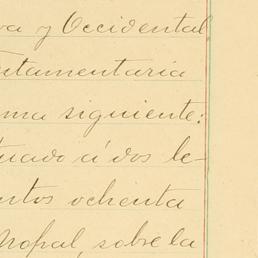 va y Occidental
stamentaria
ma siguiente:
tuado á dos le-
ntos ochenta
Nopal, sobre la